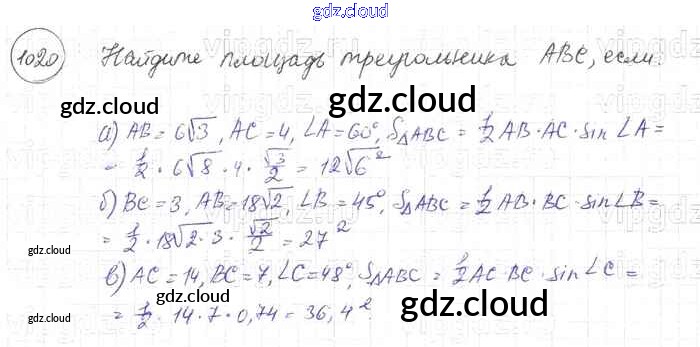 gdz.cloud
1020 Найдите площадь треугольника ABC, если:
gdz.cloud gdz.cloud
а) AB = 6√3, AC = 4, ∠A = 60°, S△ABC = 1/2 AB · AC · sin∠A =
= 1/2 · 6√8 · 4 · √3/2 = 12√6 ²
б) BC = 3, AB = 18√2, ∠B = 45°, S△ABC = 1/2 AB · BC · sin∠B =
= 1/2 · 18√2 · 3 · √2/2 = 27 ²
gdz.cloud gdz.cloud
в) AC = 14, BC = 7, ∠C = 48°, S△ABC = 1/2 AC · BC · sin∠C =
= 1/2 · 14 · 7 · 0,74 = 36,4 ²
gdz.cloud gdz.cloud